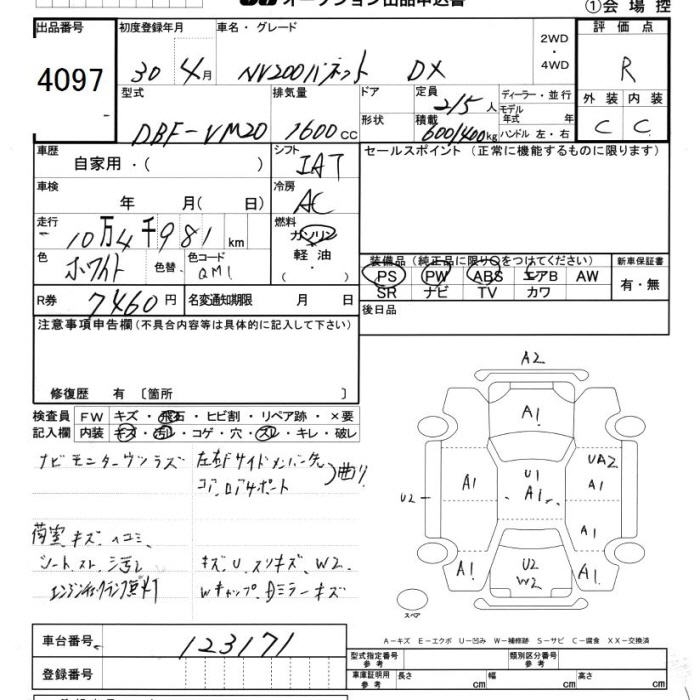 オークション出品申込書
①会場控
出品番号 初度登録年月 車名・グレード 評価点
4097 30年4月 NV200バネット DX 2WD・4WD R
型式 排気量 ドア 定員 2/5人 ディーラー・並行 外装 内装
DBF-VM20 1600cc 形状 積載 600/400kg モデル年式 年 C C
ハンドル 左・右
車歴 シフト セールスポイント(正常に機能するものに限ります)
自家用・( ) IAT
車検 冷房
年 月( 日) AC
走行 燃料
10万4千981km ガソリン・軽油・( )
色 色替 色コード 装備品(純正品に限り○をつけてください) 新車保証書
ホワイト QM1 PS PW ABS エアB AW 有・無
SR ナビ TV カワ
R券 7460円 名変通知期限 月 日 後日品
注意事項申告欄(不具合内容等は具体的に記入して下さい)
修復歴 有 〔箇所 〕
検査員 FW キズ・飛石・ヒビ割・リペア跡・×要
記入欄 内装 キズ・汚レ・コゲ・穴・スレ・キレ・破レ
ナビモニターウツラズ 左右Fサイドメンバー先
コア、ロアサポート 曲り
荷室、キズ、ヘコミ、
シート、スレ、シミ汚レ キズ、U、スリキズ、W2、
エンジンチェックランプ点灯 Wキャップ、Dミラーキズ
A2
A1
UA2
U1
A1
A1
A1
U2
A1
U2
W2
A1
A1
スペア
A-キズ E-エクボ U-凹み W-補修跡 S-サビ C-腐食 XX-交換済
車台番号 123171
型式指定番号 参考 類別区分番号 参考
登録番号
車庫証明用 参考 長さ cm 幅 cm 高さ cm